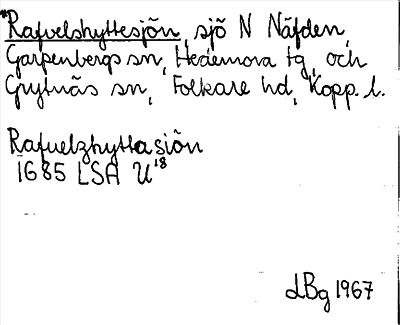 *Rafvelshyttesjön, sjö N Näfden,
Garpenbergs sn, Hedemora tg, och
Grytnäs sn, Folkare hd, Kopp. l.
Rafuelzhytta siön
1685 LSA U 18
LBg 1967